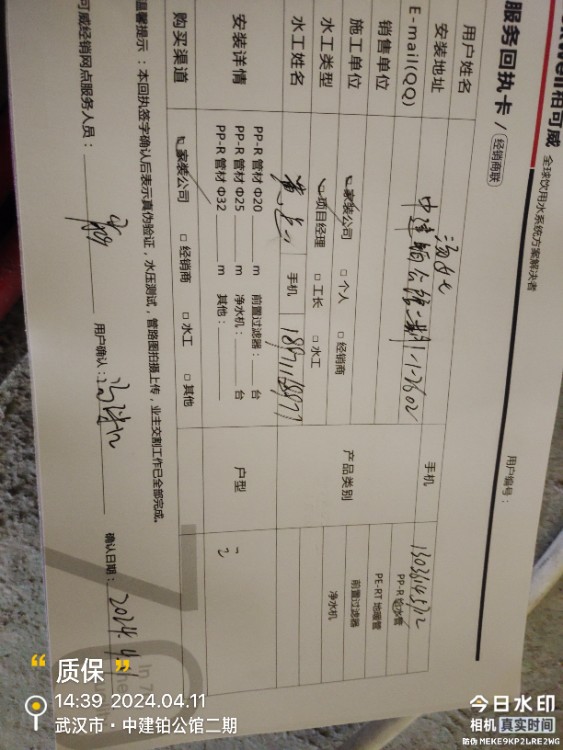 相可威 全球饮用水系统方案解决者
服务回执卡 / 经销商联
用户编号：
用户姓名
手机 13036145712
安装地址 中建铂公馆二期1-1-2602
E-mail(QQ)
PP-R 给水管
销售单位
产品类别
PE-RT 地暖管
施工单位 家装公司 □ 个人 □ 经销商
前置过滤器
水工类型 项目经理 □ 工长 □ 水工
净水机
水工姓名
手机
安装详情
PP-R 管材 Φ20 m 前置过滤器： 台
PP-R 管材 Φ25 m 净水机： 台
PP-R 管材 Φ32 m 其他：
户型
购买渠道 家装公司 □ 经销商 □ 水工 □ 其他
温馨提示：本回执签字确认后表示真伪验证，水压测试，管路图拍摄上传，业主交割工作已全部完成。
可威经销网点服务人员：
用户确认：
确认日期：
质保
14:39 2024.04.11
武汉市·中建铂公馆二期
今日水印
相机 真实时间
防伪 MEKE9KP2LRE2WG